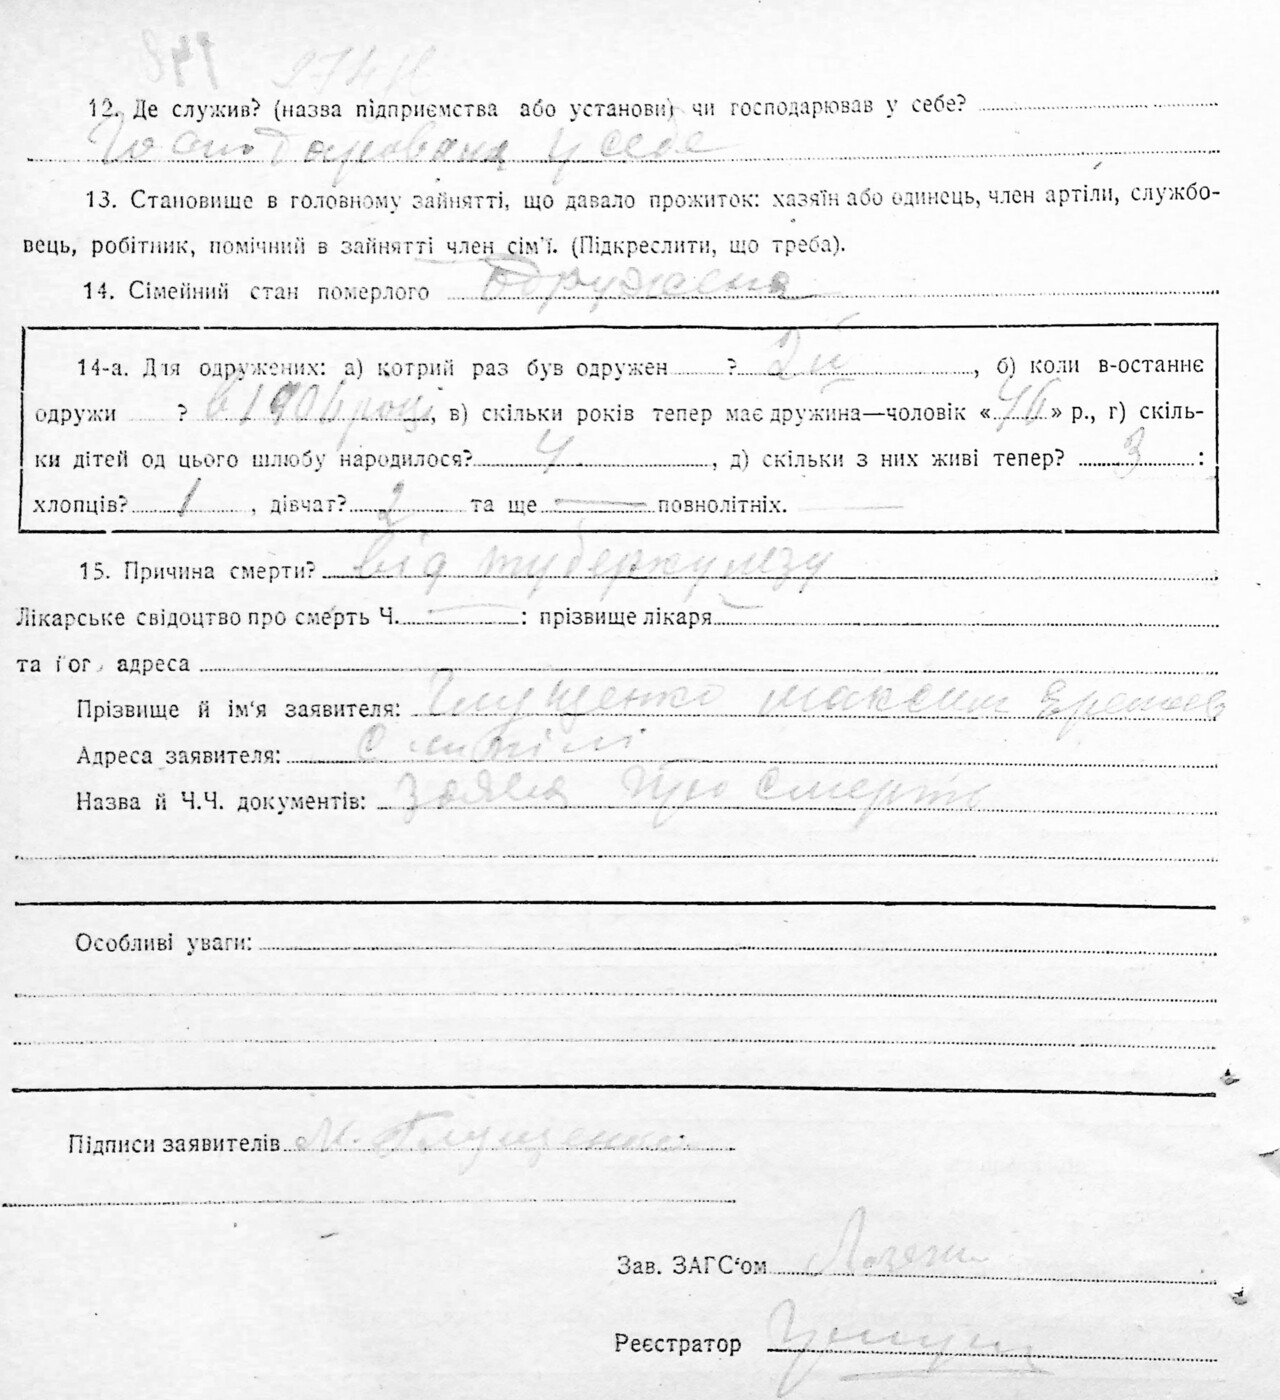 274
12. Де служив? (назва підприємства або установи) чи господарював у себе?
Господарювала у себе
13. Становище в головному зайнятті, що давало прожиток: хазяїн або одинець, член артіли, службо-
вець, робітник, помічний в зайнятті член сім'ї. (Підкреслити, що треба).
14. Сімейний стан померлого одружена
14-а. Для одружених: а) котрий раз був одружен ? 2й, б) коли в-останнє
одружи ? в 1906 році, в) скільки років тепер має дружина—чоловік «46» р., г) скіль-
ки дітей од цього шлюбу народилося? 4, д) скільки з них живі тепер? 3:
хлопців? 1, дівчат? 2 та ще — повнолітніх.
15. Причина смерти? від туберкулізу
Лікарське свідоцтво про смерть Ч. — : прізвище лікаря —
та його адреса
Прізвище й ім'я заявителя: Глущенко Максим
Адреса заявителя:
Назва й Ч.Ч. документів: заява про смерть
Особливі уваги:
Підписи заявителів М. Глущенко
Зав. ЗАГС'ом
Реєстратор